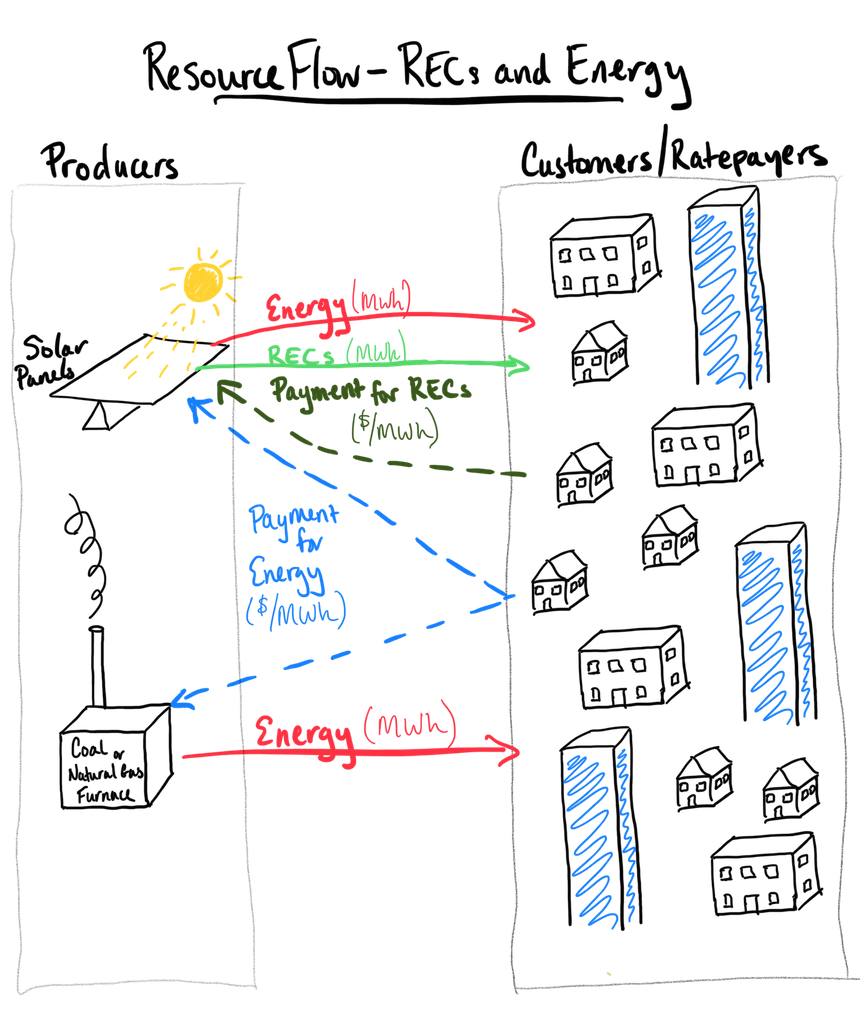 Resource Flow - RECs and Energy
Producers
Customers/Ratepayers
Solar
Panels
Energy (MWh)
RECs (MWh)
Payment for RECs
($/MWh)
Payment
for
Energy
($/MWh)
Energy (MWh)
Coal or
Natural Gas
Furnace